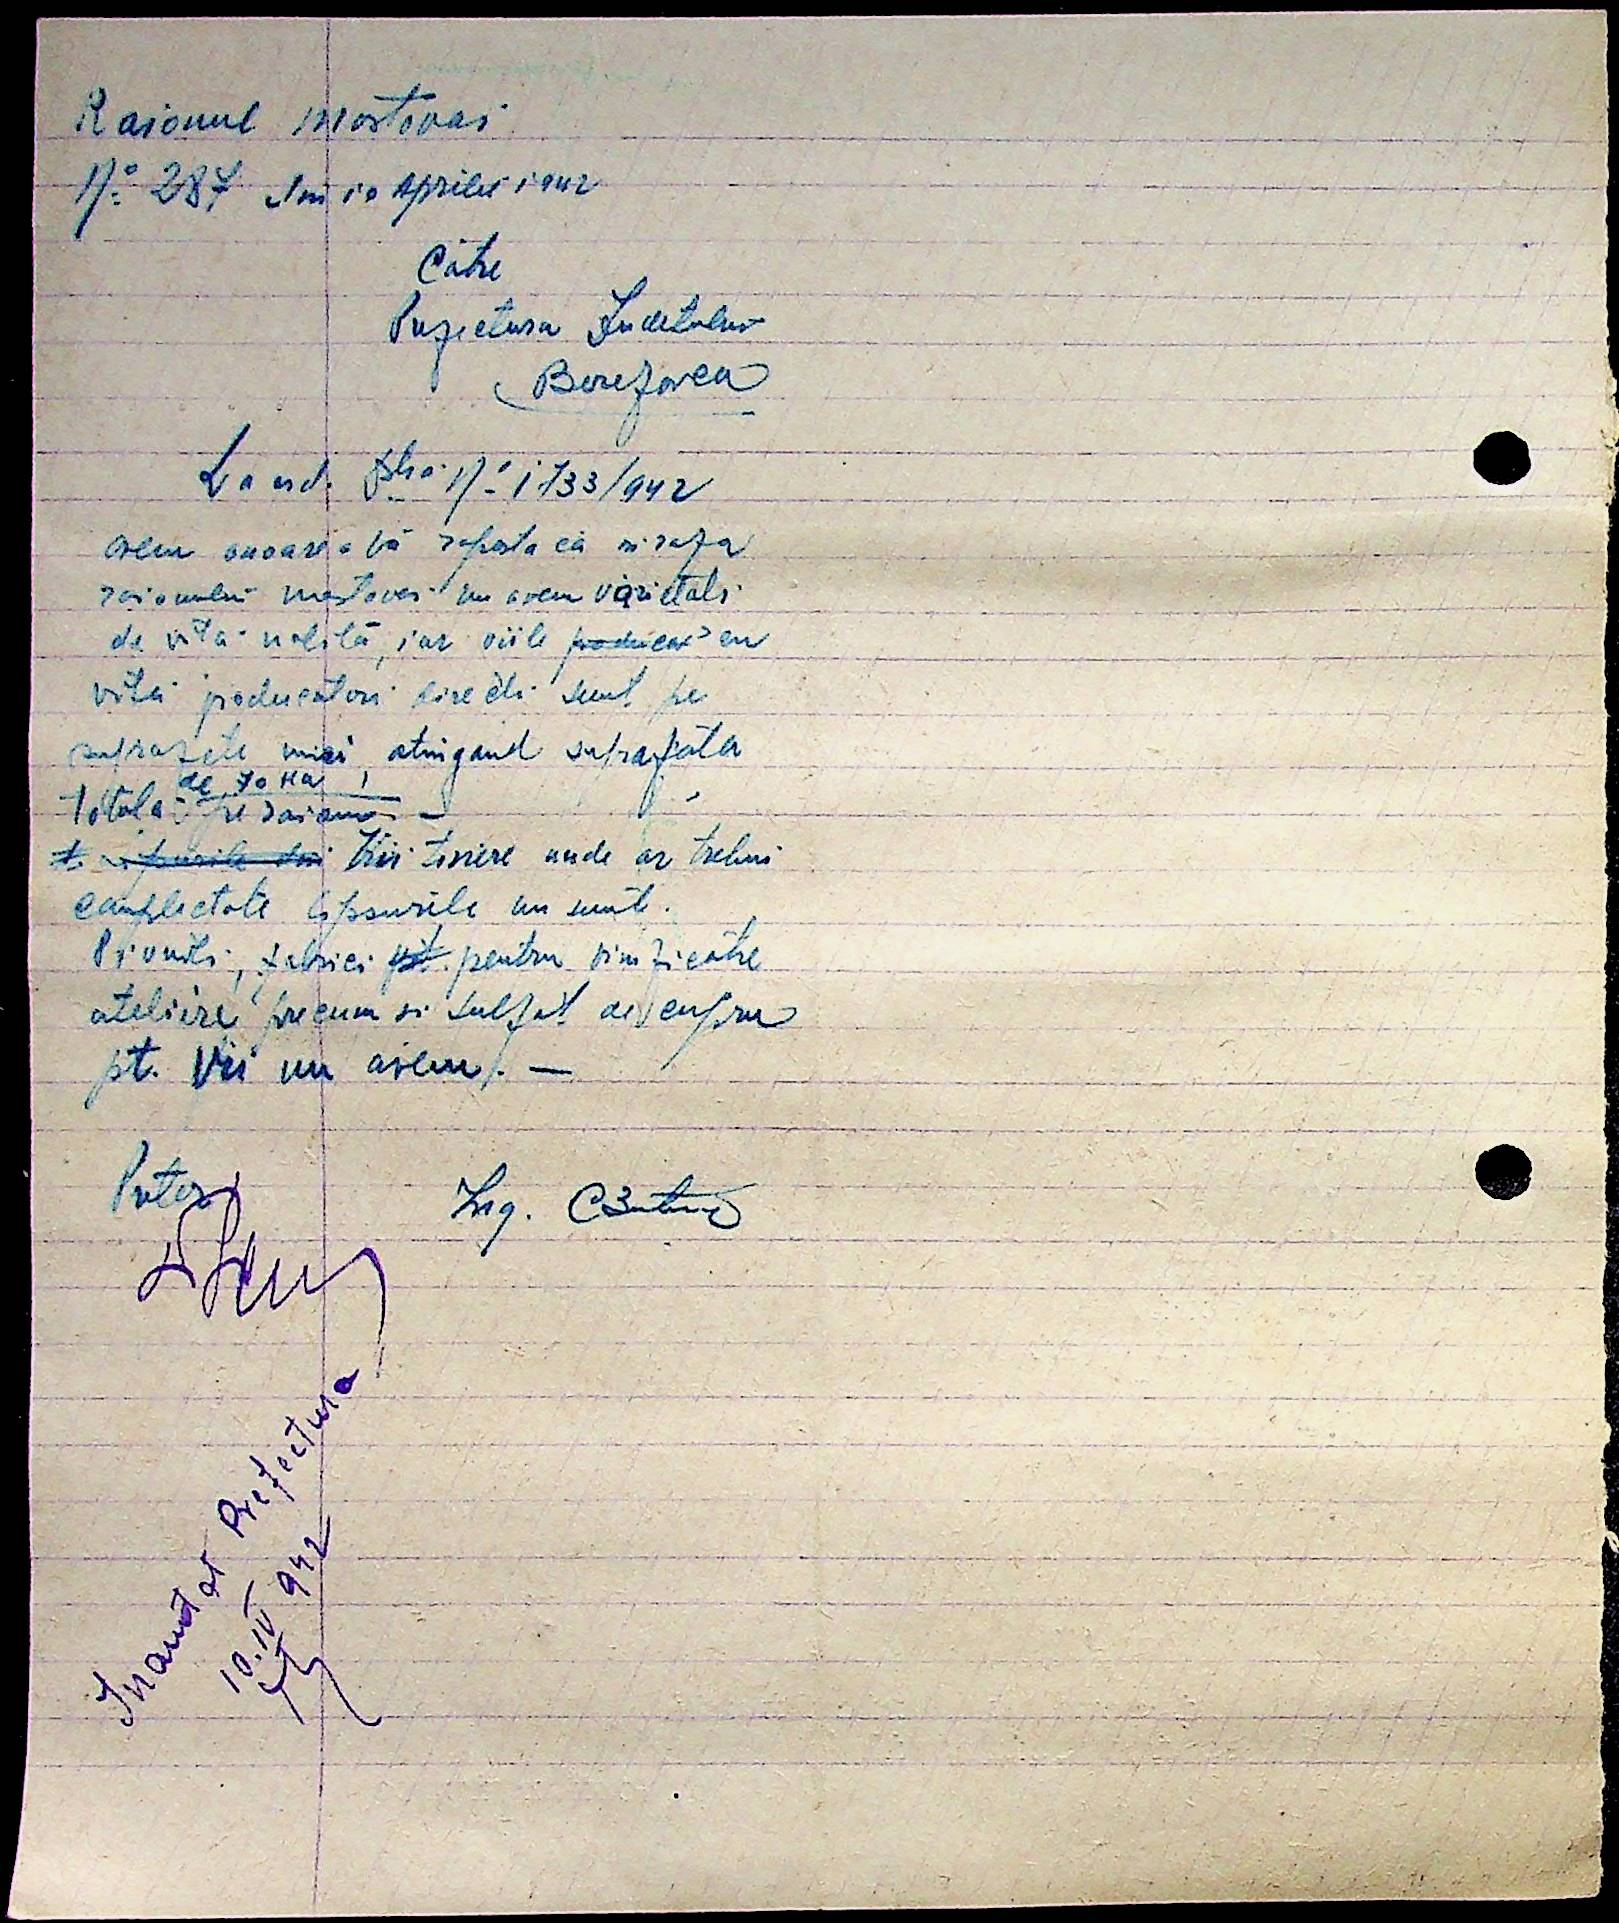 Raionul Mostovoi
No. 287 din 10 Aprilie 1942
Către
Prefectura Judetului
Berezovca
La ord. Dvs. No. 1733/942
avem onoarea vă raporta că in raza
raionului Mostovoi nu avem varietati
de vită nobilă, iar viile cu
vită producători directi sunt pe
suprafete mici atingand suprafata
totală de 70 Ha pe raion. —
Vii tinere unde ar trebui
complectate lipsurile nu sunt.
Pivniti, fabrici pentru vinificatie
ateliere precum si sulfat de cupru
pt. Vii nu avem. —
Pretor
Ing.
Inaintat Prefectura
10.IV 942